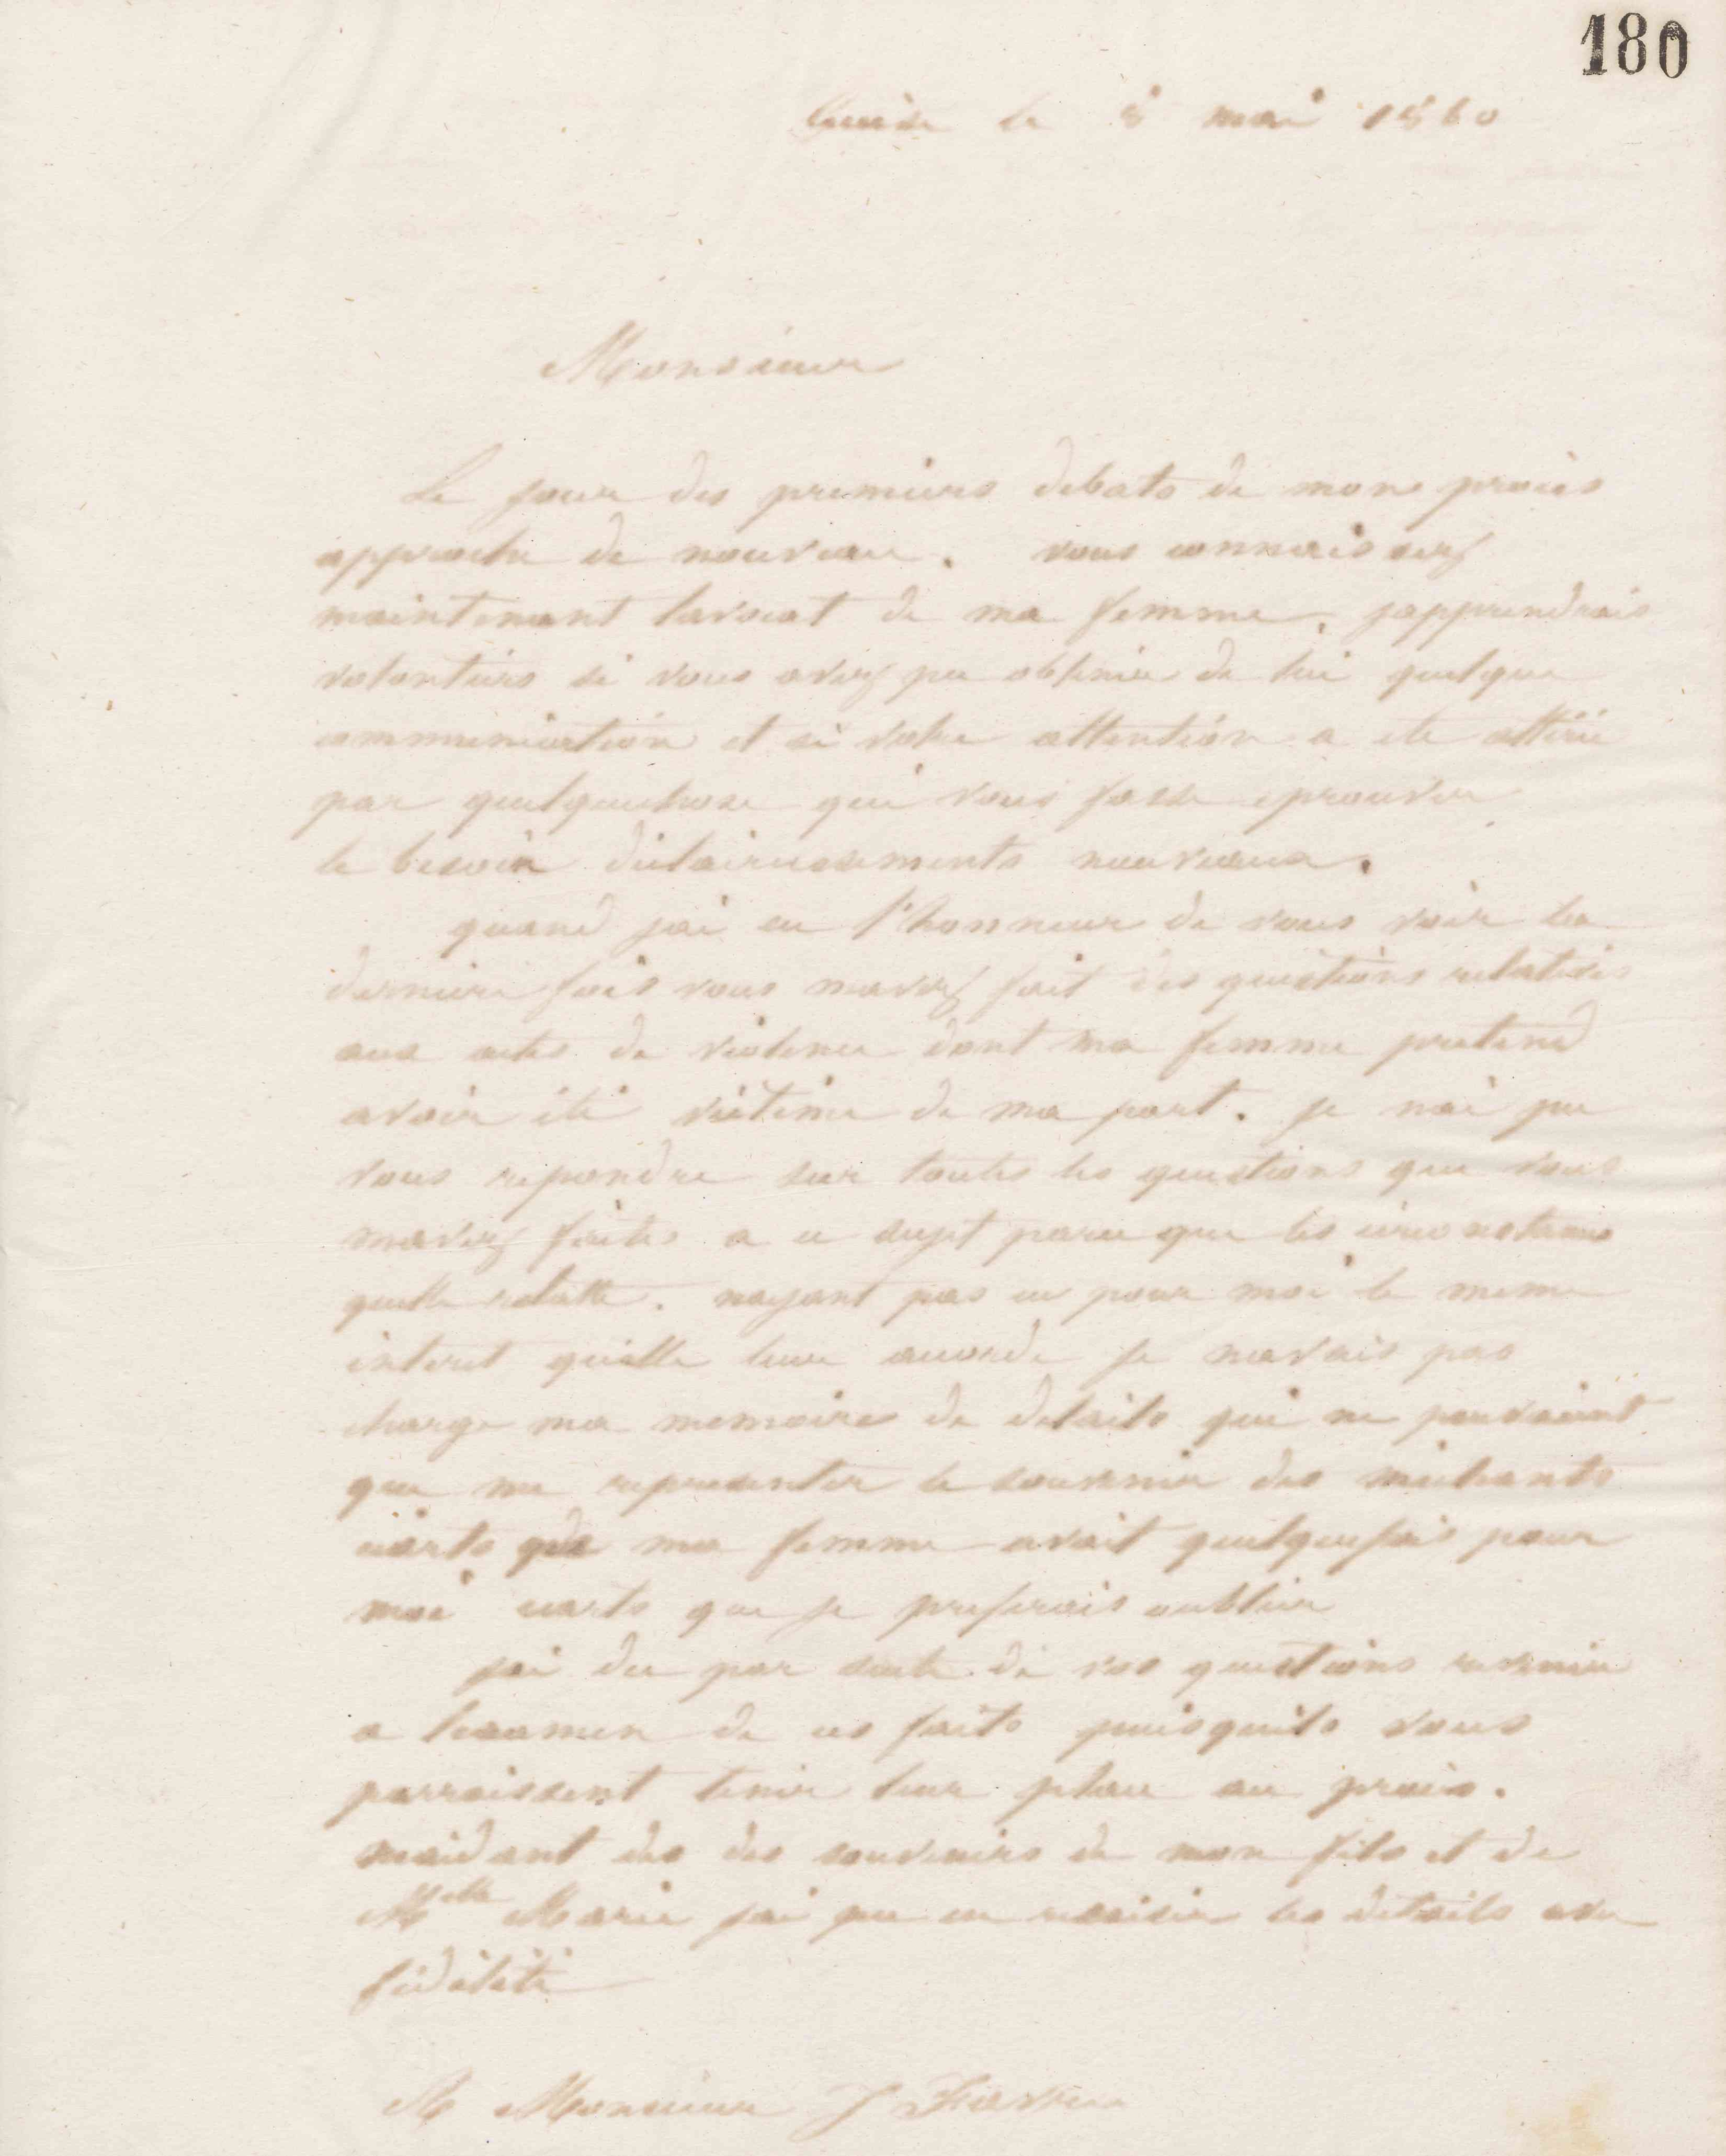 180
Guise le 8 mai 1860
Monsieur
Le jour des premiers debats de mon procès
approche de nouveau. vous connaissez
maintenant lavocat de ma femme, japprendrais
volontiers si vous avez pu obtenir de lui quelque
communication et si votre attention a ete attirée
par quelquechose qui vous fasse eprouver
le besoin déclaircissements nouveaux.
quand jai eu l'honneur de vous voir la
derniere fois vous mavez fait des questions relatives
aux actes de violence dont ma femme pretend
avoir été victime de ma part. je nai pu
vous repondre sur toutes les questions que vous
mavez faites a ce sujet parce que les circonstances
quelle relatte. nayant pas eu pour moi le meme
interet quelle leur accorde je navais pas
charge ma memoire de details qui ne pouvaient
que me representer le souvenir des mechants
ecarts que ma femme avait quelquefois pour
moi ecarts que je preferais oublier
jai du par suite de vos questions revenir
a lexamen de ces faits puisquils vous
parraissent tenir leur place au procès.
maidant des des souvenirs de mon fils et de
Melle Marie jai pu en ressaisir les details avec
fidélité
A Monsieur J Favre